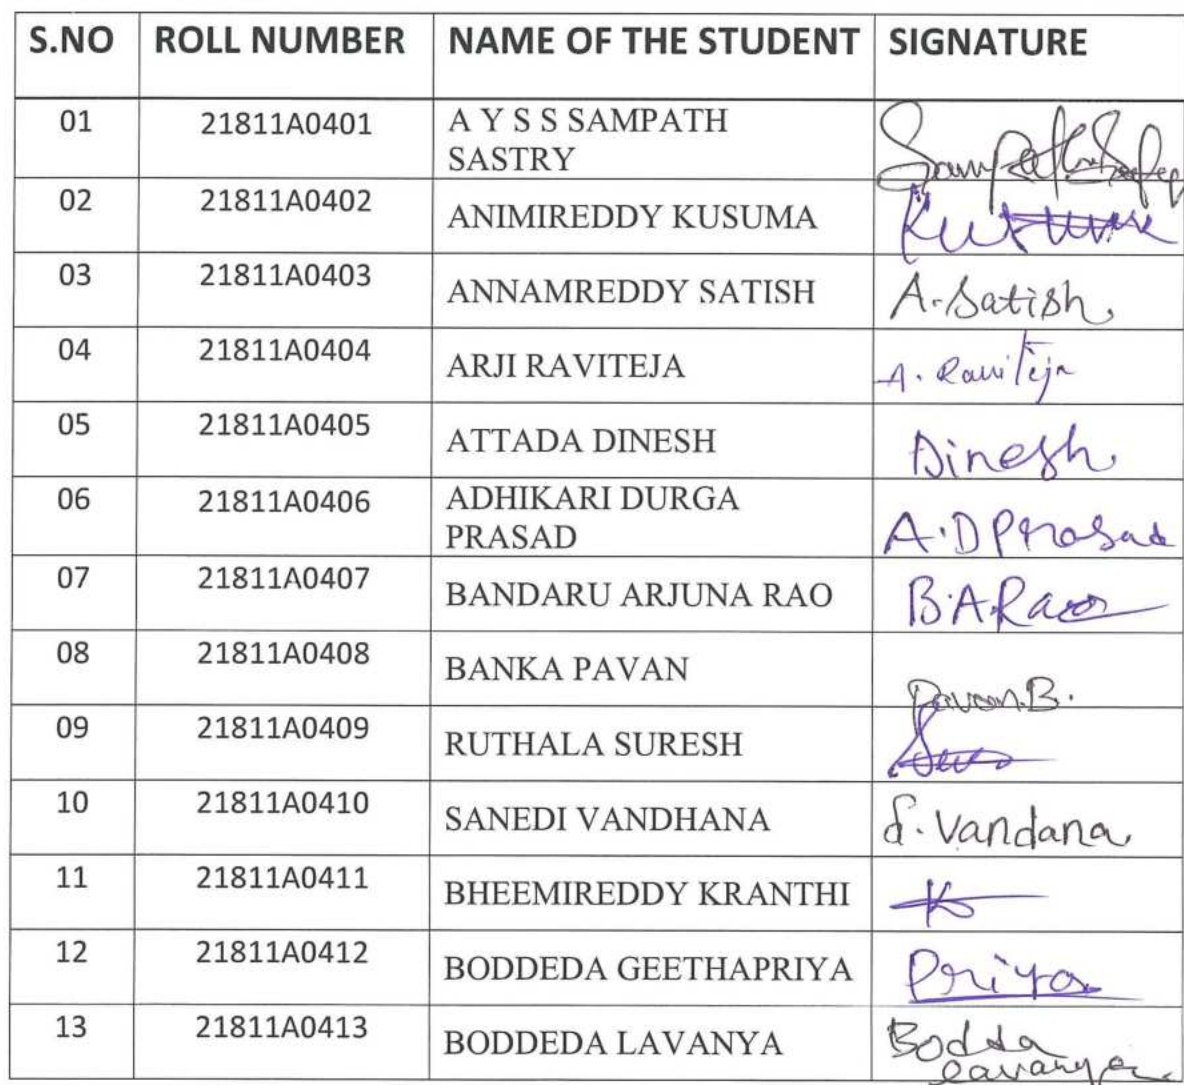 S.NO ROLL NUMBER NAME OF THE STUDENT SIGNATURE
01 21811A0401 A Y S S SAMPATH
SASTRY
02 21811A0402 ANIMIREDDY KUSUMA Kusuma
03 21811A0403 ANNAMREDDY SATISH A.Satish
04 21811A0404 ARJI RAVITEJA A. Raviteja
05 21811A0405 ATTADA DINESH Dinesh
06 21811A0406 ADHIKARI DURGA
PRASAD A.D Prasad
07 21811A0407 BANDARU ARJUNA RAO B.A.Rao
08 21811A0408 BANKA PAVAN Pavan.B.
09 21811A0409 RUTHALA SURESH
10 21811A0410 SANEDI VANDHANA S. Vandana
11 21811A0411 BHEEMIREDDY KRANTHI K
12 21811A0412 BODDEDA GEETHAPRIYA Priya
13 21811A0413 BODDEDA LAVANYA Bodda
Lavanya